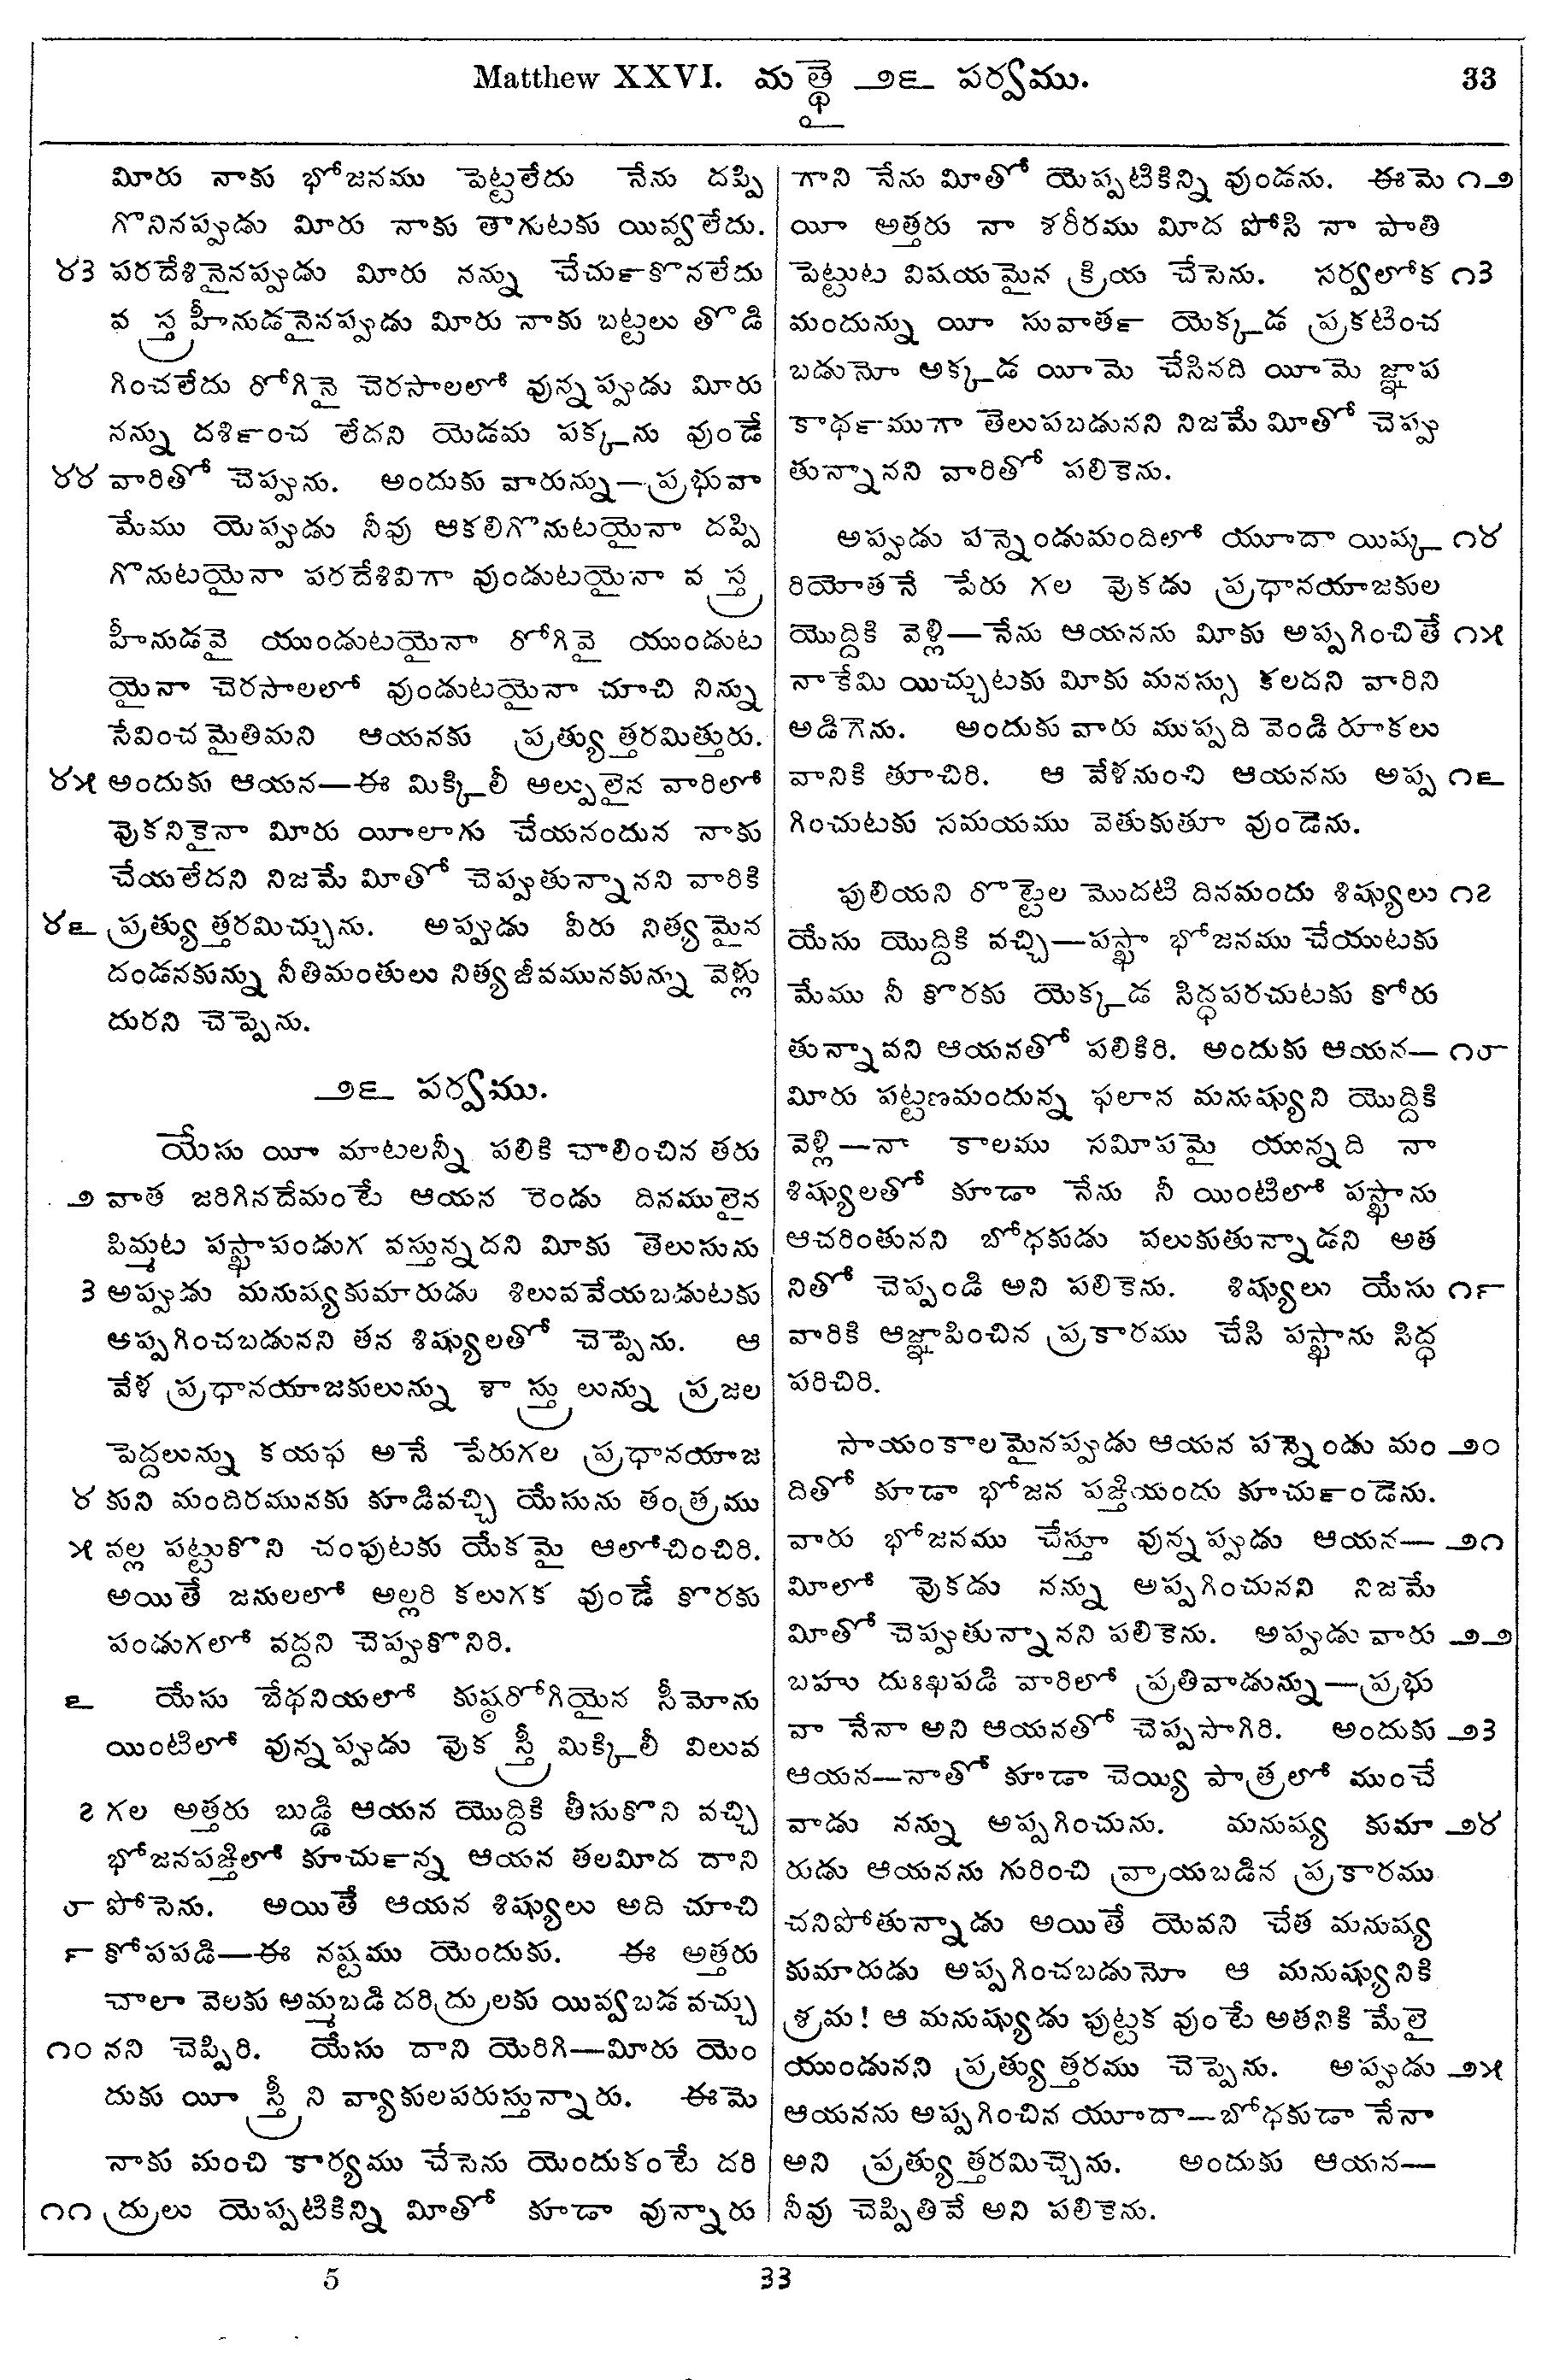 Matthew XXVI. మత్థై ౨౬ పర్వము. 33
మీరు నాకు భోజనము పెట్టలేదు నేను దప్పి
గొనినప్పుడు మీరు నాకు తాగుటకు యివ్వలేదు.
౪౩ పరదేశినైనప్పుడు మీరు నన్ను చేచుర్కొనలేదు
వస్త్రహీనుడనైనప్పుడు మీరు నాకు బట్టలు తొడి
గించలేదు రోగినై చెరసాలలో వున్నప్పుడు మీరు
నన్ను దర్శించ లేదని యెడమ పక్కను వుండే
౪౪ వారితో చెప్పును. అందుకు వారున్ను—ప్రభువా
మేము యెప్పుడు నీవు ఆకలిగొనుటయైనా దప్పి
గొనుటయైనా పరదేశివిగా వుండుటయైనా వస్త్ర
హీనుడవై యుండుటయైనా రోగివై యుండుట
యైనా చెరసాలలో వుండుటయైనా చూచి నిన్ను
సేవించ మైతిమని ఆయనకు ప్రత్యుత్తరమిత్తురు.
౪౫ అందుకు ఆయన—ఈ మిక్కిలీ అల్పులైన వారిలో
వొకనికైనా మీరు యీలాగు చేయనందున నాకు
చేయలేదని నిజమే మీతో చెప్పుతున్నానని వారికి
౪౬ ప్రత్యుత్తరమిచ్చును. అప్పుడు వీరు నిత్యమైన
దండనకున్ను నీతిమంతులు నిత్యజీవమునకున్ను వెళ్లు
దురని చెప్పెను.
౨౬ పర్వము.
యేసు యీ మాటలన్నీ పలికి చాలించిన తరు
౨ వాత జరిగినదేమంటే ఆయన రెండు దినములైన
పిమ్మట పస్ఖాపండుగ వస్తున్నదని మీకు తెలుసును
౩ అప్పుడు మనుష్యకుమారుడు శిలువవేయబడుటకు
అప్పగించబడునని తన శిష్యులతో చెప్పెను. ఆ
వేళ ప్రధానయాజకులున్ను శాస్త్రులున్ను ప్రజల
పెద్దలున్ను కయఫ అనే పేరుగల ప్రధానయాజ
౪ కుని మందిరమునకు కూడివచ్చి యేసును తంత్రము
౫ వల్ల పట్టుకొని చంపుటకు యేకమై ఆలోచించిరి.
అయితే జనులలో అల్లరి కలుగక వుండే కొరకు
పండుగలో వద్దని చెప్పుకొనిరి.
౬ యేసు బేథనియలో కుష్ఠరోగియైన సీమోను
యింటిలో వున్నప్పుడు వొక స్త్రీ మిక్కిలీ విలువ
౭ గల అత్తరు బుడ్డి ఆయన యొద్దికి తీసుకొని వచ్చి
భోజనపఙ్తిలో కూచుర్న్న ఆయన తలమీద దాని
౮ పోసెను. అయితే ఆయన శిష్యులు అది చూచి
౯ కోపపడి—ఈ నష్టము యెందుకు. ఈ అత్తరు
చాలా వెలకు అమ్మబడి దరిద్రులకు యివ్వబడ వచ్చు
౧౦ నని చెప్పిరి. యేసు దాని యెరిగి—మీరు యెం
దుకు యీ స్త్రీని వ్యాకులపరుస్తున్నారు. ఈమె
నాకు మంచి కార్యము చేసెను యెందుకంటే దరి
౧౧ ద్రులు యెప్పటికిన్ని మీతో కూడా వున్నారు
గాని నేను మీతో యెప్పటికిన్ని వుండను. ఈమె ౧౨
యీ అత్తరు నా శరీరము మీద పోసి నా పాతి
పెట్టుట విషయమైన క్రియ చేసెను. సర్వలోక ౧౩
మందున్ను యీ సువార్త యెక్కడ ప్రకటించ
బడునో అక్కడ యీమె చేసినది యీమె జ్ఞాప
కార్థముగా తెలుపబడునని నిజమే మీతో చెప్పు
తున్నానని వారితో పలికెను.
అప్పుడు పన్నెండుమందిలో యూదా యిష్క ౧౪
రియోతనే పేరు గల వొకడు ప్రధానయాజకుల
యొద్దికి వెళ్లి—నేను ఆయనను మీకు అప్పగించితే ౧౫
నాకేమి యిచ్చుటకు మీకు మనస్సు కలదని వారిని
అడిగెను. అందుకు వారు ముప్పది వెండి రూకలు
వానికి తూచిరి. ఆ వేళనుంచి ఆయనను అప్ప ౧౬
గించుటకు సమయము వెతుకుతూ వుండెను.
పులియని రొట్టెల మొదటి దినమందు శిష్యులు ౧౭
యేసు యొద్దికి వచ్చి—పస్ఖా భోజనము చేయుటకు
మేము నీ కొరకు యెక్కడ సిద్ధపరచుటకు కోరు
తున్నావని ఆయనతో పలికిరి. అందుకు ఆయన— ౧౮
మీరు పట్టణమందున్న ఫలాన మనుష్యుని యొద్దికి
వెళ్లి—నా కాలము సమీపమై యున్నది నా
శిష్యులతో కూడా నేను నీ యింటిలో పస్ఖాను
ఆచరింతునని బోధకుడు పలుకుతున్నాడని అత
నితో చెప్పండి అని పలికెను. శిష్యులు యేసు ౧౯
వారికి ఆజ్ఞాపించిన ప్రకారము చేసి పస్ఖాను సిద్ధ
పరిచిరి.
సాయంకాలమైనప్పుడు ఆయన పన్నెండు మం ౨౦
దితో కూడా భోజన పఙ్తియందు కూచుర్ండెను.
వారు భోజనము చేస్తూ వున్నప్పుడు ఆయన— ౨౧
మీలో వొకడు నన్ను అప్పగించునని నిజమే
మీతో చెప్పుతున్నానని పలికెను. అప్పుడు వారు ౨౨
బహు దుఃఖపడి వారిలో ప్రతివాడున్ను—ప్రభు
వా నేనా అని ఆయనతో చెప్పసాగిరి. అందుకు ౨౩
ఆయన—నాతో కూడా చెయ్యి పాత్రలో ముంచే
వాడు నన్ను అప్పగించును. మనుష్య కుమా ౨౪
రుడు ఆయనను గురించి వ్రాయబడిన ప్రకారము
చనిపోతున్నాడు అయితే యెవని చేత మనుష్య
కుమారుడు అప్పగించబడునో ఆ మనుష్యునికి
శ్రమ! ఆ మనుష్యుడు పుట్టక వుంటే అతనికి మేలై
యుండునని ప్రత్యుత్తరము చెప్పెను. అప్పుడు ౨౫
ఆయనను అప్పగించిన యూదా—బోధకుడా నేనా
అని ప్రత్యుత్తరమిచ్చెను. అందుకు ఆయన—
నీవు చెప్పితివే అని పలికెను.
5 33